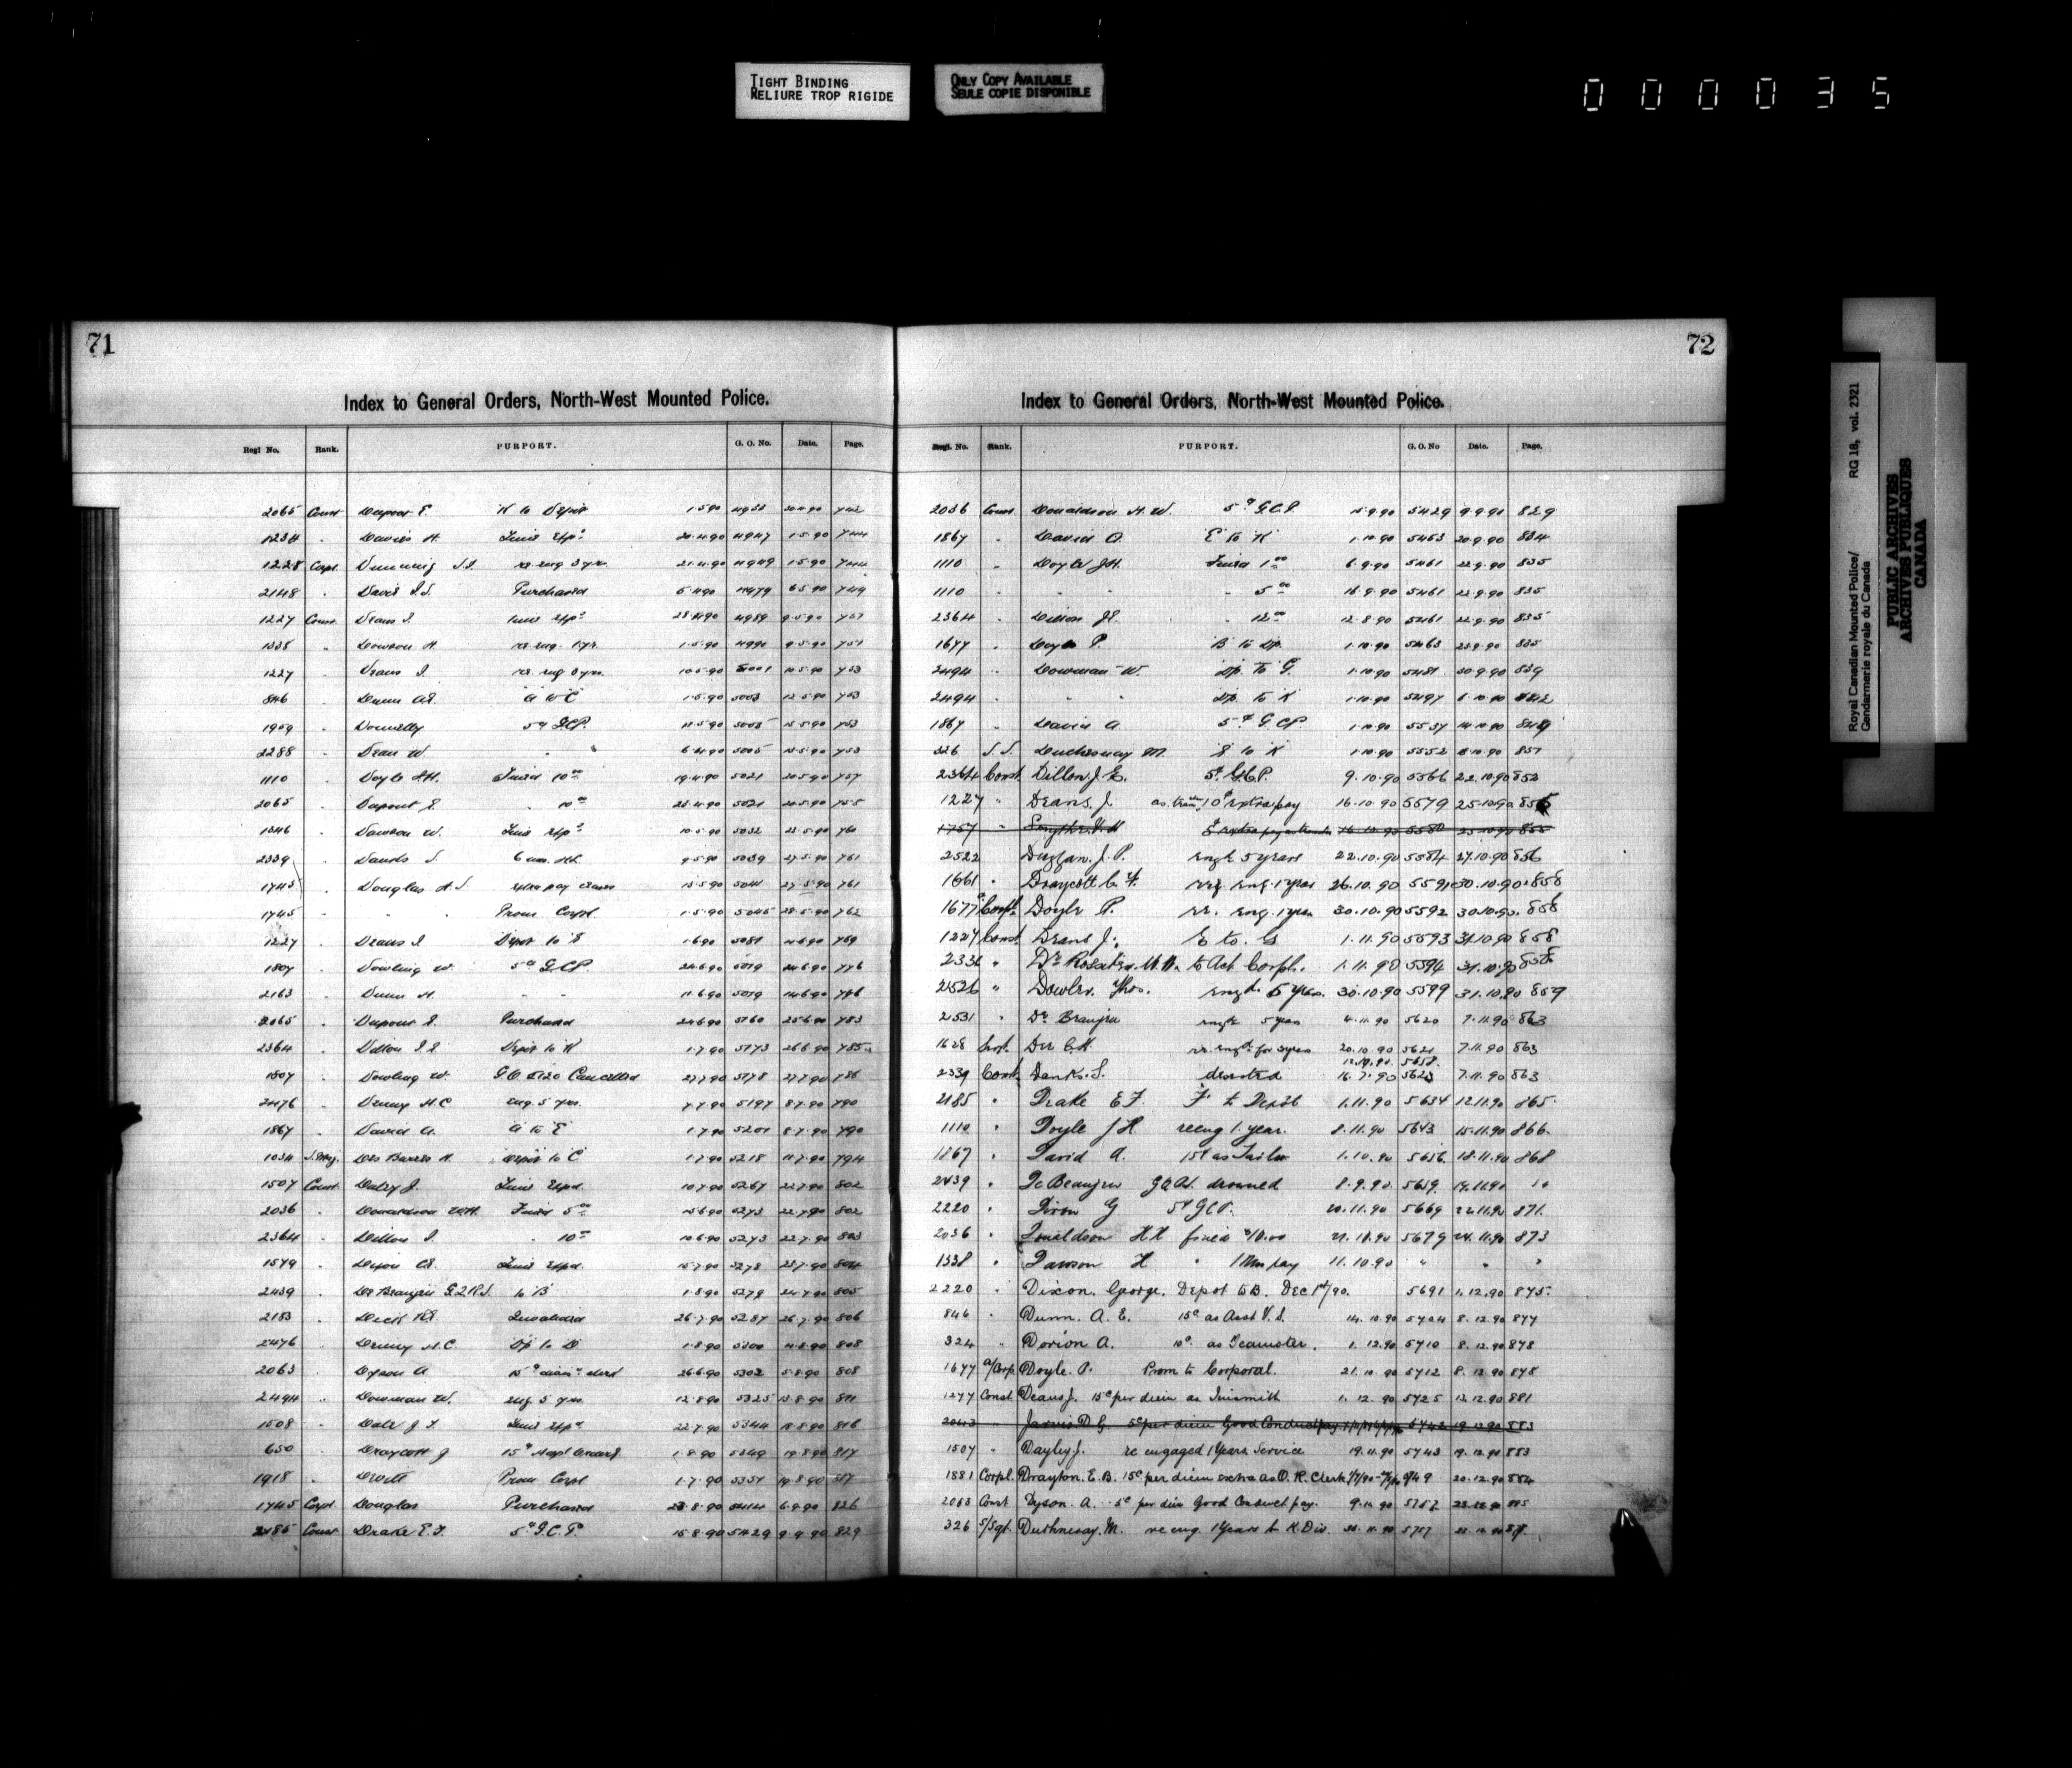 TIGHT BINDING
RELIURE TROP RIGIDE
ONLY COPY AVAILABLE
SEULE COPIE DISPONIBLE
000035
71
Index to General Orders, North-West Mounted Police.
Regl No. Rank. PURPORT. G. O. No. Date. Page.
2065 Const Dupont E. K to Depot 1.5.90 4933 30.4.90 742
1234 " Davies H. Time Exp. 20.4.90 4947 1.5.90 744
1228 Corpl re eng 3 yrs. 21.4.90 4949 1.5.90 744
2148 " Davis Purchased 5.4.90 4979 6.5.90 749
1227 Const Deans J. Time Exp. 28.4.90 4989 9.5.90 751
1338 " Dawson H re eng. 1 yr. 1.5.90 4990 9.5.90 751
1227 Deans J. re eng 3 yrs. 10.5.90 5001 10.5.90 753
846 " Dunn A.E. A to C 1.5.90 5003 12.5.90 753
1959 " Donnelly 5c G.C.P. 11.5.90 5005 13.5.90 753
2288 " Dean W " " 6.4.90 5005 13.5.90 753
1110 " Doyle J.H. Fined 10.00 19.4.90 5021 20.5.90 757
2065 " Dupont E. " 10.00 5021 20.5.90 755
1346 " Dawson W. Time Exp. 10.5.90 5032 23.5.90 760
2339 " Danks S. 6 mos. H.L. 9.5.90 5039 27.5.90 761
1745 " Douglas H.S. extra pay 5041 27.5.90 761
1745 " " " Prom Corpl 1.5.90 5045 28.5.90 762
1227 " Deans J Depot to E 1.6.90 5081 4.6.90 769
1807 " Dowling W. 5c G.C.P. 5019 14.6.90 776
2163 " Dunn H. " " 11.6.90 5019 14.6.90 776
2065 " Dupont E. Purchased 24.6.90 5160 25.6.90 783
2364 " Dillon J.E. Depot to K 1.7.90 5173 26.6.90 785
1807 " Dowling W. G.O. 5120 Cancelled 27.7.90 5178 27.7.90 786
2476 " Denny H.C. eng. 5 yrs. 7.7.90 5197 8.7.90 790
1867 " David A. A to E 1.7.90 5201 8.7.90 790
1034 S.Maj. Des Barres H. Depot to C 1.7.90 5218 11.7.90 794
1507 Const Daley J. Time Expd. 10.7.90 5267 22.7.90 802
2036 " Donaldson W.H. Fined 5.00 15.6.90 5273 22.7.90 802
2364 " Dillon J. " 10.00 10.6.90 5273 22.7.90 803
1579 " Time Expd. 15.7.90 5278 23.7.90 804
2439 " De Beaujeu G.Q.R.S. to B 1.8.90 5279 24.7.90 805
2183 " Invalided 26.7.90 5287 26.7.90 806
2476 " Denny H.C. Dp to D 1.8.90 5300 4.8.90 808
2063 " Dyson A. 26.6.90 5302 5.8.90 808
2494 " Dowman W. eng 5 yrs. 12.8.90 5325 13.8.90 811
1508 " Dale J.T. Time Expd. 22.7.90 5344 18.8.90 816
650 " Draycott J 15c Hospl 1.8.90 5349 19.8.90 817
1918 " Prom Corpl 1.7.90 5351 19.8.90 817
1745 Corpl Douglas Purchased 23.8.90 5414 6.9.90 826
2185 Const Drake E.F. 5c G.C.P. 15.8.90 5429 9.9.90 829
72
Index to General Orders, North-West Mounted Police.
Regl. No. Rank. PURPORT. G. O. No Date. Page.
2036 Const Donaldson H.W. 5c G.C.P. 15.9.90 5429 9.9.90 829
1867 " David A. E to K 1.10.90 5453 20.9.90 834
1110 " Doyle J.H. Fined 1.00 6.9.90 5461 22.9.90 835
1110 " " " " 5.00 16.9.90 5461 22.9.90 835
2364 " Dillon J.E. " 12.00 12.8.90 5461 22.9.90 835
1677 " Doyle P. B to Dp. 1.10.90 5463 23.9.90 835
2494 " Dowman W. Dp. to G. 1.10.90 5481 30.9.90 839
2494 " " " Dp. to K 1.10.90 5497 6.10.90 842
1867 " David A 5c G.C.P 1.10.90 5537 14.10.90 849
326 S.S. Duchesnay M. E to K 1.10.90 5552 851
2364 Const Dillon J. E. 5c G.C.P. 9.10.90 5566 22.10.90 852
1227 " Deans, J as 10c extra pay 16.10.90 5579 25.10.90 855
1757 " Smythe 5580 25.10.90 855
2522 Duggan. J. P. engd 5 years 22.10.90 5584 27.10.90 856
1661 " Draycott C. Y. eng. 1 year 26.10.90 5591 30.10.90 858
1677 Corpl. Doyle P. re. eng. 1 year 30.10.90 5592 30.10.90. 858
1227 Const Deans J. E to. G 1.11.90 5593 31.10.90 858
2336 " to Act Corpl. 1.11.90 5594 31.10.90 858
2526 " Dowler. Thos. engd. 5 years. 30.10.90 5599 31.10.90 859
2531 " De Beaujeu engd 5 years 4.11.90 5620 7.11.90 863
1628 Sergt. Dee C.H. re. engd for 3 years 20.10.90 5621 7.11.90 863
5658.
2339 Const. Danks. S. deserted 16.7.90 5623 7.11.90 863
2185 " Drake E F. F to Depôt 1.11.90 5634 12.11.90 865.
1110 " Doyle J H reeng 1. year. 8.11.90 5643 15.11.90 866.
1867 " David A. 15c as Tailor 1.10.90 5656 18.11.90 868
2439 " De Beaujeu G.Q.R.S. drowned 8.9.90 5659. 19.11.90 "
2220 " Dixon G 5c G.C.P. 20.11.90 5669 22.11.90 871.
2036 " Donaldson H H fined $10.00 21.10.90 5679 24.11.90 873
1338 " Dawson H " 1 Mos pay 11.10.90 " " "
2220 " Dixon. George. Depot to B. Dec 1st/90. 5691 1.12.90 875.
846 " Dunn. A. E. 15c as Asst V.S. 14.10.90 5704 8.12.90 877
324 " Dorion A. 10c. as Teamster. 1.12.90 5710 8.12.90 878
1677 a/Corp Doyle. P. Prom to Corporal. 21.10.90 5712 8.12.90 878
1277 Const. Deans J. 15c per diem as Tinsmith 1.12.90 5725 12.12.90 881
2043 " Jarvis D G. 5c per diem Good Conduct pay. 5742 19.12.90 883
1507 " Dayley J. re engaged 1 Years Service 19.11.90 5743 19.12.90 883
1881 Corpl. Drayton. E. B. 15c per diem extra as O. R. Clerk 5749 20.12.90 884
2063 Const Dyson. A. 5c per diem Good Conduct pay. 5757 885
326 S/Sgt. Duchnesay. M. re eng. 1 Years to K. Div. 5757
Royal Canadian Mounted Police/
Gendarmerie royale du Canada
RG 18, vol. 2321
PUBLIC ARCHIVES
ARCHIVES PUBLIQUES
CANADA